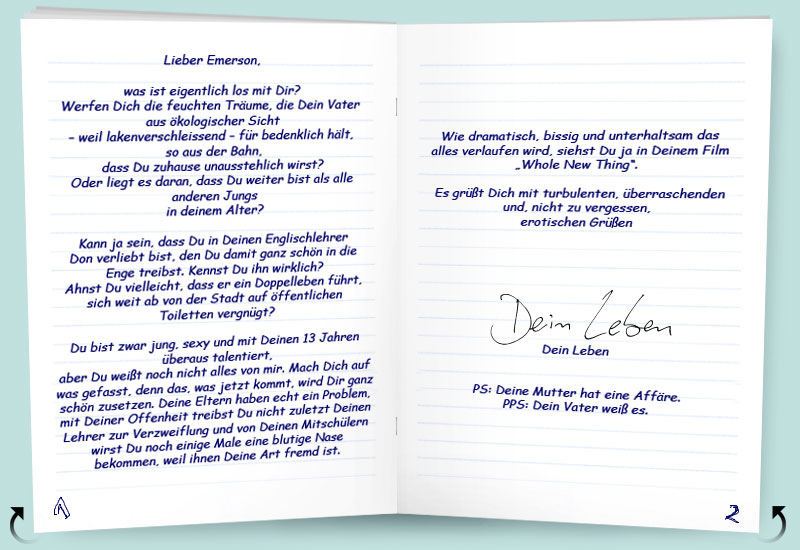 Lieber Emerson,
was ist eigentlich los mit Dir?
Werfen Dich die feuchten Träume, die Dein Vater
aus ökologischer Sicht
– weil lakenverschleissend – für bedenklich hält,
so aus der Bahn,
dass Du zuhause unausstehlich wirst?
Oder liegt es daran, dass Du weiter bist als alle
anderen Jungs
in deinem Alter?
Kann ja sein, dass Du in Deinen Englischlehrer
Don verliebt bist, den Du damit ganz schön in die
Enge treibst. Kennst Du ihn wirklich?
Ahnst Du vielleicht, dass er ein Doppelleben führt,
sich weit ab von der Stadt auf öffentlichen
Toiletten vergnügt?
Du bist zwar jung, sexy und mit Deinen 13 Jahren
überaus talentiert,
aber Du weißt noch nicht alles von mir. Mach Dich auf
was gefasst, denn das, was jetzt kommt, wird Dir ganz
schön zusetzen. Deine Eltern haben echt ein Problem,
mit Deiner Offenheit treibst Du nicht zuletzt Deinen
Lehrer zur Verzweiflung und von Deinen Mitschülern
wirst Du noch einige Male eine blutige Nase
bekommen, weil ihnen Deine Art fremd ist.
1
Wie dramatisch, bissig und unterhaltsam das
alles verlaufen wird, siehst Du ja in Deinem Film
„Whole New Thing“.
Es grüßt Dich mit turbulenten, überraschenden
und, nicht zu vergessen,
erotischen Grüßen
Dein Leben
Dein Leben
PS: Deine Mutter hat eine Affäre.
PPS: Dein Vater weiß es.
2